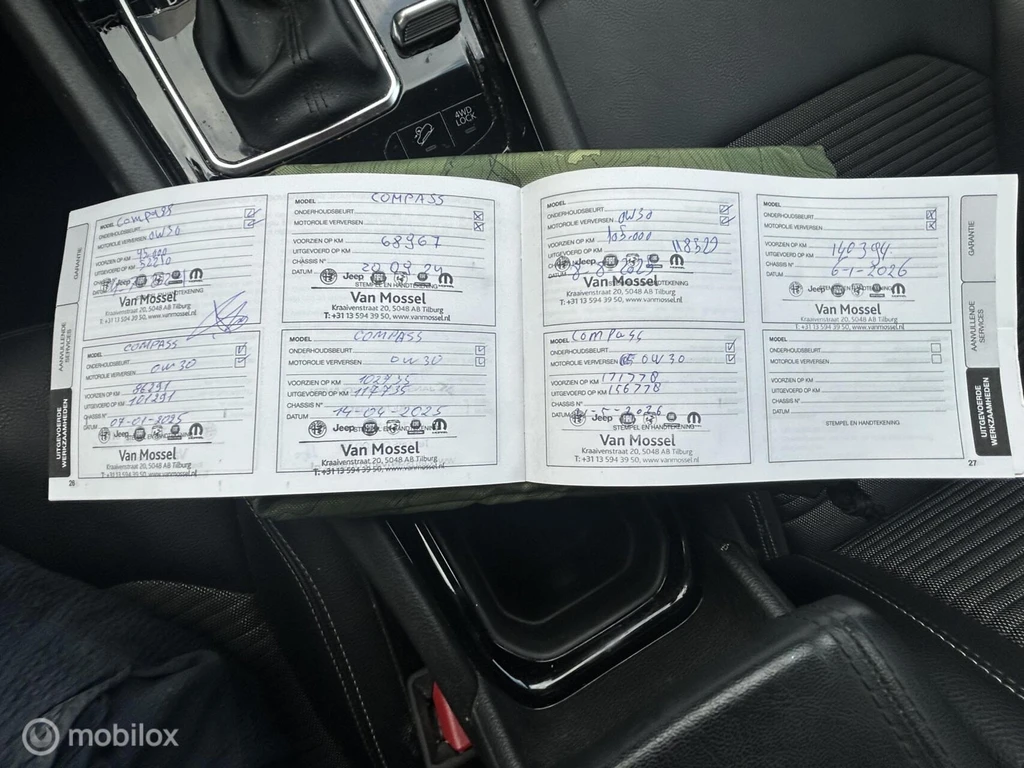 4WD
LOCK
GARANTIE
AANVULLENDE
SERVICES
UITGEVOERDE
WERKZAAMHEDEN
MODEL Compass
ONDERHOUDSBEURT
MOTOROLIE VERVERSEN 0W30
VOORZIEN OP KM
UITGEVOERD OP KM
CHASSIS N°
DATUM
Jeep
Van Mossel
Kraaivenstraat 20, 5048 AB Tilburg
T: +31 13 594 39 50, www.vanmossel.nl
MODEL COMPASS
ONDERHOUDSBEURT
MOTOROLIE VERVERSEN
VOORZIEN OP KM
UITGEVOERD OP KM 68967
CHASSIS N°
DATUM
Jeep
STEMPEL EN HANDTEKENING
Van Mossel
Kraaivenstraat 20, 5048 AB Tilburg
T: +31 13 594 39 50, www.vanmossel.nl
MODEL COMPASS
ONDERHOUDSBEURT
MOTOROLIE VERVERSEN 0W30
VOORZIEN OP KM
UITGEVOERD OP KM 101291
CHASSIS N°
DATUM 07-01-2025
Jeep
Van Mossel
Kraaivenstraat 20, 5048 AB Tilburg
T: +31 13 594 39 50, www.vanmossel.nl
26
MODEL COMPASS
ONDERHOUDSBEURT
MOTOROLIE VERVERSEN 0W30
VOORZIEN OP KM 102735
UITGEVOERD OP KM 117735
CHASSIS N°
DATUM 14-04-2025
Jeep
Van Mossel
Kraaivenstraat 20, 5048 AB Tilburg
T: +31 13 594 39 50, www.vanmossel.nl
MODEL
ONDERHOUDSBEURT
MOTOROLIE VERVERSEN 0W30
VOORZIEN OP KM 105.000
UITGEVOERD OP KM
CHASSIS N°
DATUM
Jeep
Van Mossel
Kraaivenstraat 20, 5048 AB Tilburg
T: +31 13 594 39 50, www.vanmossel.nl
MODEL
ONDERHOUDSBEURT
MOTOROLIE VERVERSEN
VOORZIEN OP KM
UITGEVOERD OP KM 140394
CHASSIS N°
DATUM 6-1-2026
Jeep
Van Mossel
Kraaivenstraat 20, 5048 AB Tilburg
T: +31 13 594 39 50, www.vanmossel.nl
MODEL Compass
ONDERHOUDSBEURT
MOTOROLIE VERVERSEN 0W30
VOORZIEN OP KM 171778
UITGEVOERD OP KM 156778
CHASSIS N°
DATUM
Jeep
STEMPEL EN HANDTEKENING
Van Mossel
Kraaivenstraat 20, 5048 AB Tilburg
T: +31 13 594 39 50, www.vanmossel.nl
MODEL
ONDERHOUDSBEURT
MOTOROLIE VERVERSEN
VOORZIEN OP KM
UITGEVOERD OP KM
CHASSIS N°
DATUM
STEMPEL EN HANDTEKENING
27
GARANTIE
AANVULLENDE
SERVICES
UITGEVOERDE
WERKZAAMHEDEN
mobilox